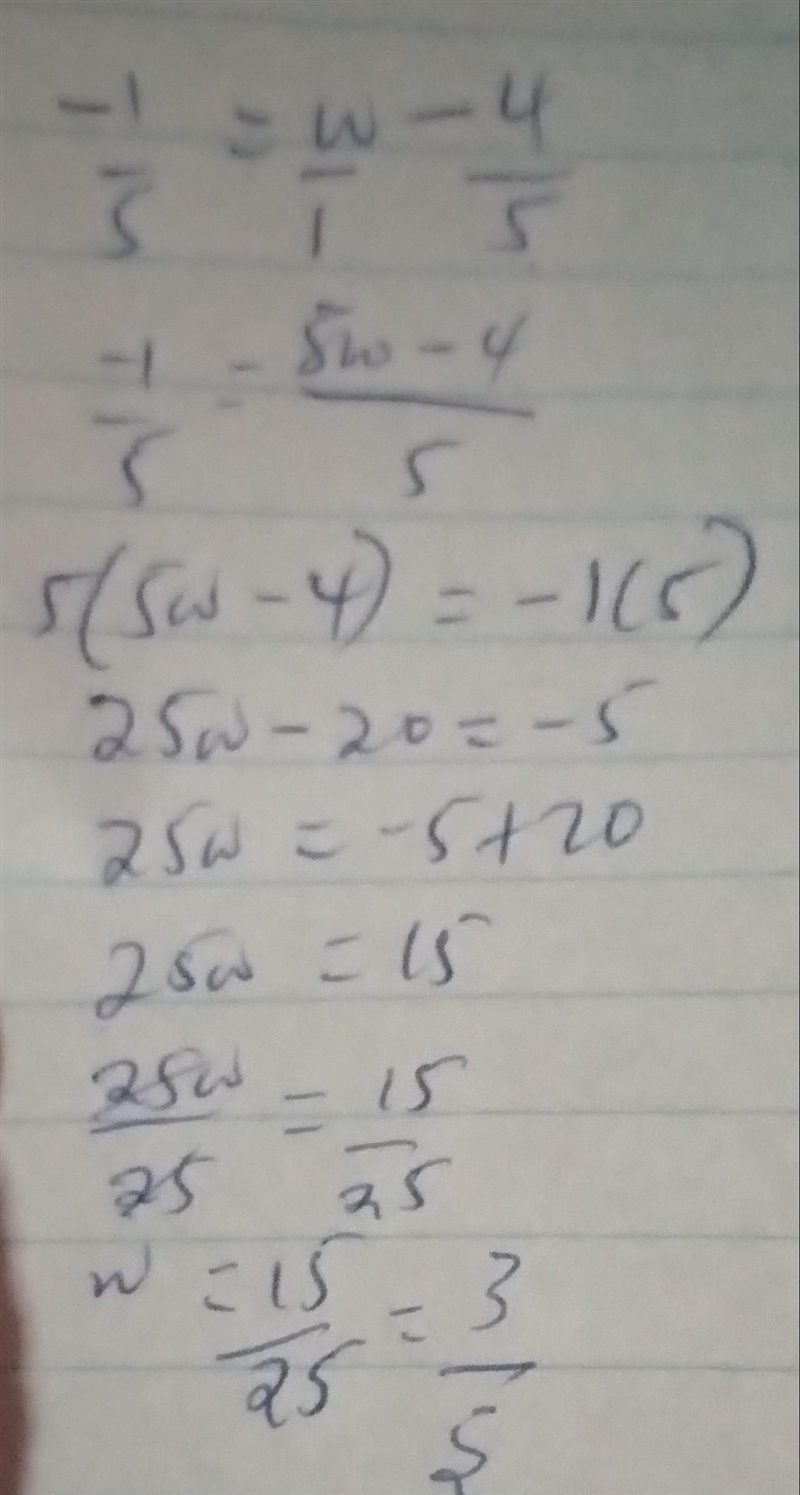 -1/5 = w/1 - 4/5
-1/5 = (5w - 4)/5
5(5w - 4) = -1(5)
25w - 20 = -5
25w = -5 + 20
25w = 15
25w/25 = 15/25
w = 15/25 = 3/5